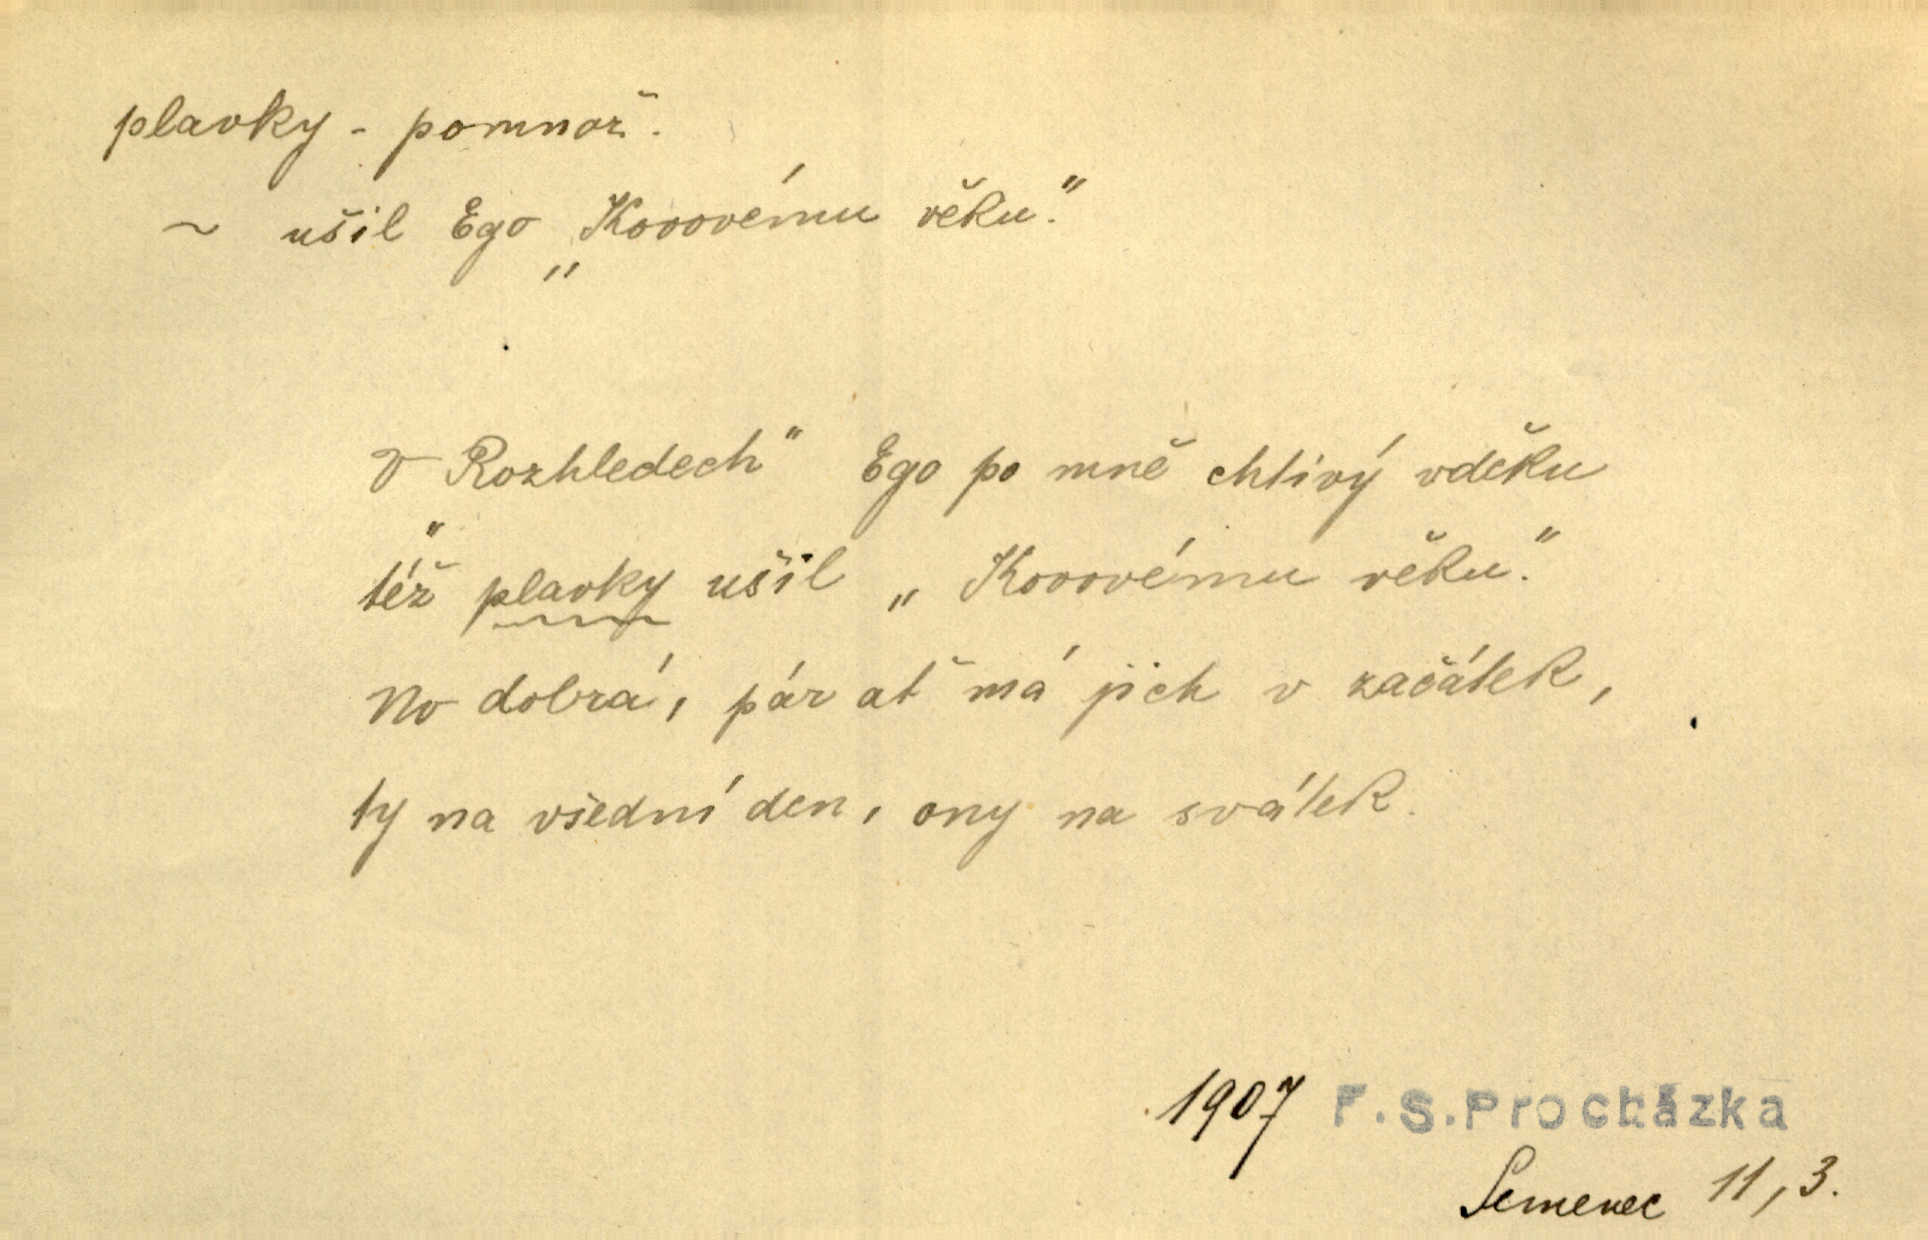 plavky - pomnož.
~ ušil Ego „Kovovému věku".
V „Rozhledech" Ego po mně chtivý vděku
též plavky ušil „Kovovému věku".
No dobrá, pár ať má jich v začátek,
ty na všední den, ony na svátek.
1907 F.S.Procházka
Semenec 11,3.